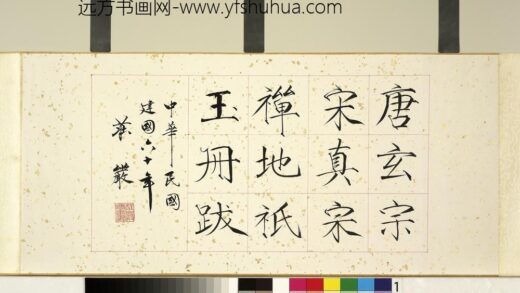 远方书画网-www.yfshuhua.com
唐玄宗
宋真宗
禪地祇
玉冊跋
中華民國
建國六十年
莊嚴
1